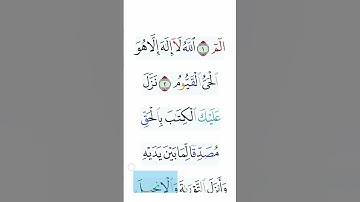 الٓمٓ ۝١ ٱللَّهُ لَآ إِلَٰهَ إِلَّا هُوَ
ٱلْحَىُّ ٱلْقَيُّومُ ۝٢ نَزَّلَ
عَلَيْكَ ٱلْكِتَٰبَ بِٱلْحَقِّ
مُصَدِّقًا لِّمَا بَيْنَ يَدَيْهِ
وَأَنزَلَ ٱلتَّوْرَىٰةَ وَٱلْإِنجِيلَ